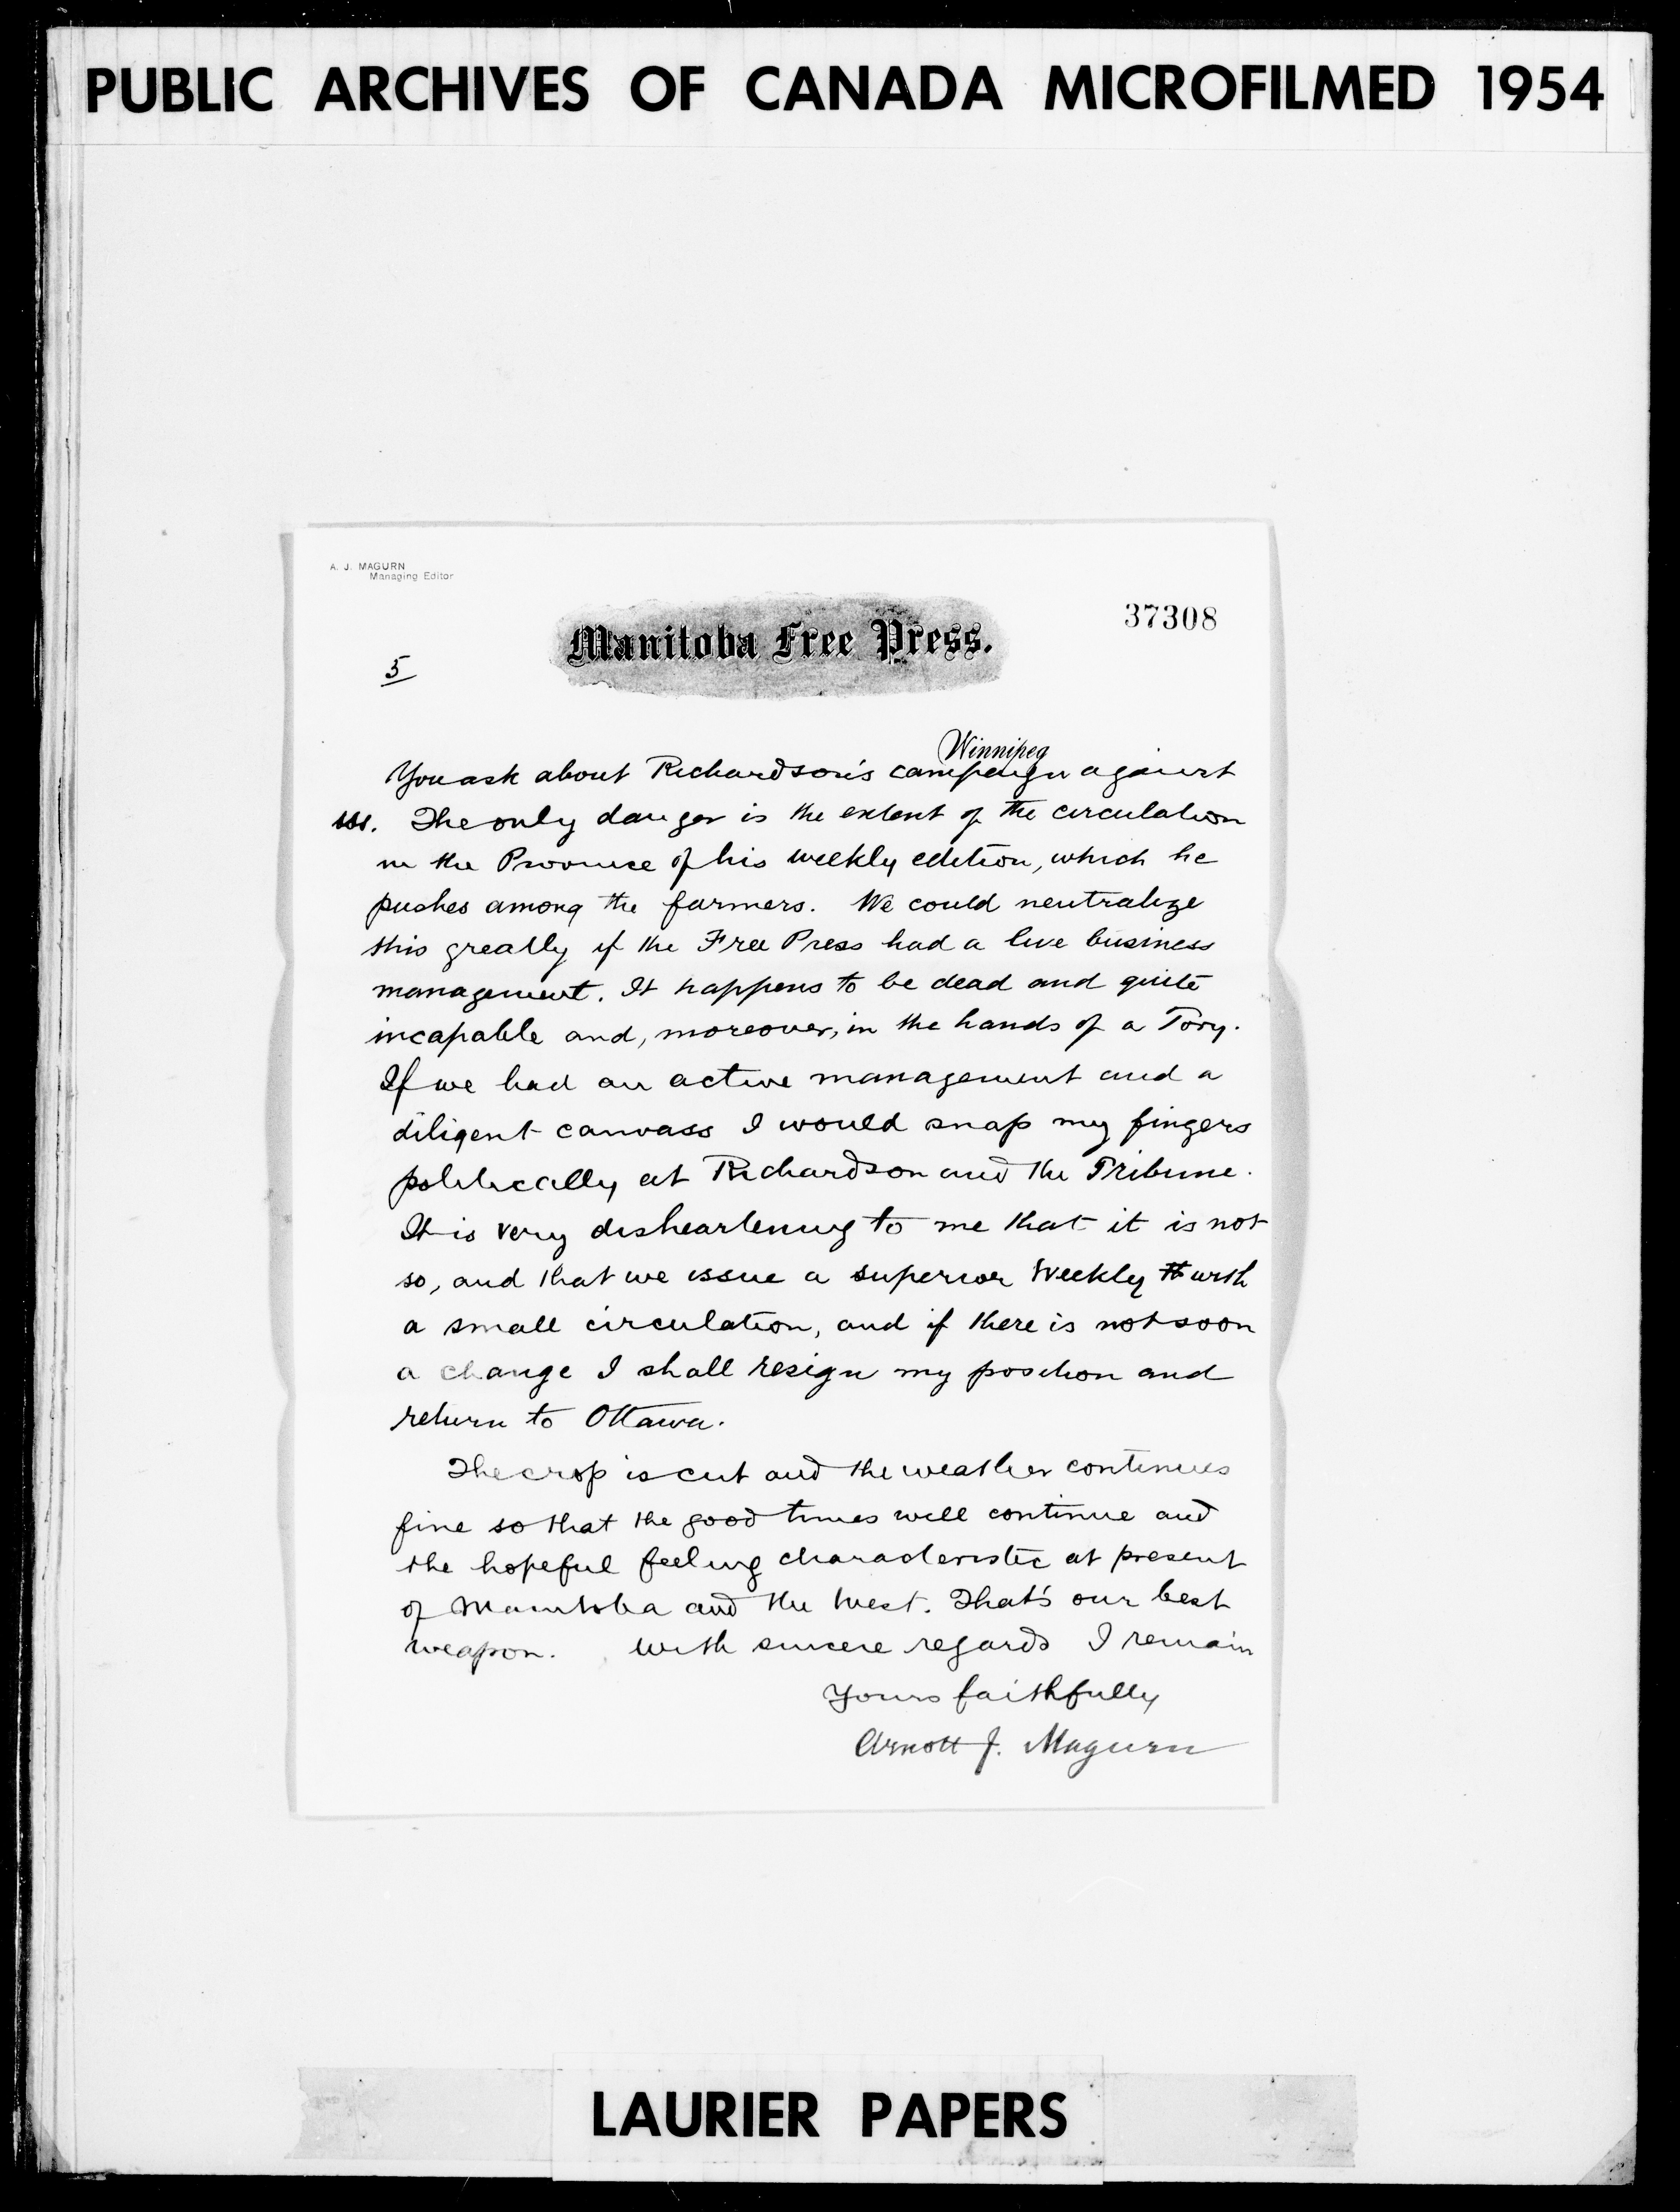 PUBLIC ARCHIVES OF CANADA MICROFILMED 1954
A. J. MAGURN
Managing Editor
37308
Manitoba Free Press.
5
Winnipeg
You ask about Richardson's campaign against
us. The only danger is the extent of the circulation
in the Province of his weekly edition, which he
pushes among the farmers. We could neutralize
this greatly if the Free Press had a live business
management. It happens to be dead and quite
incapable and, moreover, in the hands of a Tory.
If we had an active management and a
diligent canvass I would snap my fingers
politically at Richardson and the Tribune.
It is very disheartening to me that it is not
so, and that we issue a superior Weekly with
a small circulation, and if there is not soon
a change I shall resign my position and
return to Ottawa.
The crop is cut and the weather continues
fine so that the good times will continue and
the hopeful feeling characteristic at present
of Manitoba and the West. That's our best
weapon. With sincere regards I remain
Yours faithfully
Arnott J. Magurn
LAURIER PAPERS